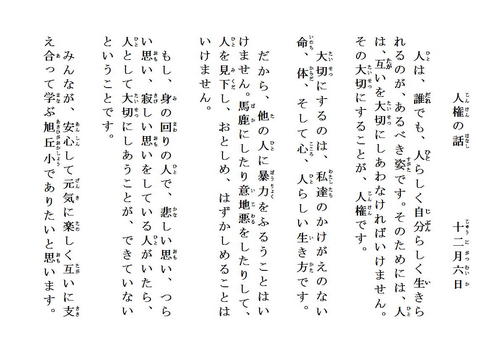 人権の話　十二月六日
人は、誰でも、人らしく自分らしく生きら
れるのが、あるべき姿です。そのためには、人
は、互いを大切にしあわなければいけません。
その大切にすることが、人権です。
大切にするのは、私達のかけがえのない
命、体、そして心、人らしい生き方です。
だから、他の人に暴力をふるうことはい
けません。馬鹿にしたり意地悪をしたりして、
人を見下し、おとしめ、はずかしめることは
いけません。
もし、身の回りの人で、悲しい思い、つら
い思い、寂しい思いをしている人がいたら、
人として大切にしあうことが、できていない
ということです。
みんなが、安心して元気に楽しく互いに支
え合って学ぶ旭丘小でありたいと思います。